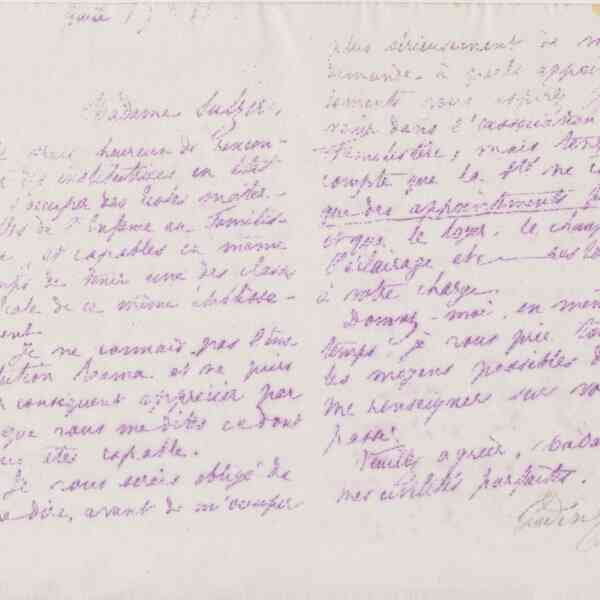 Madame
serais heureux de rencon-
des institutrices en état
s'occuper des écoles mater-
de l'Enfance au Familis-
et capables en même
de tenir une des classes
de ce même établisse-
ment.
Je ne connais pas l'ins-
et ne puis
conséquent apprécier par
que vous me dites ce dont
êtes capable.
Je vous serais obligé de
dire, avant de m'occuper
plus sérieusement de
demande, à quels appoin-
tements vous
dans l'association
Familistère, mais
compte que la Sté ne
que des appointements
et que le loyer, le chauf
l'éclairage etc
à votre charge.
Donnez-moi, en mêm
temps je vous prie
les moyens possibles d
me renseigner sur vo
passé.
Veuillez agréer, Mada
mes civilités parfaites.
Godin